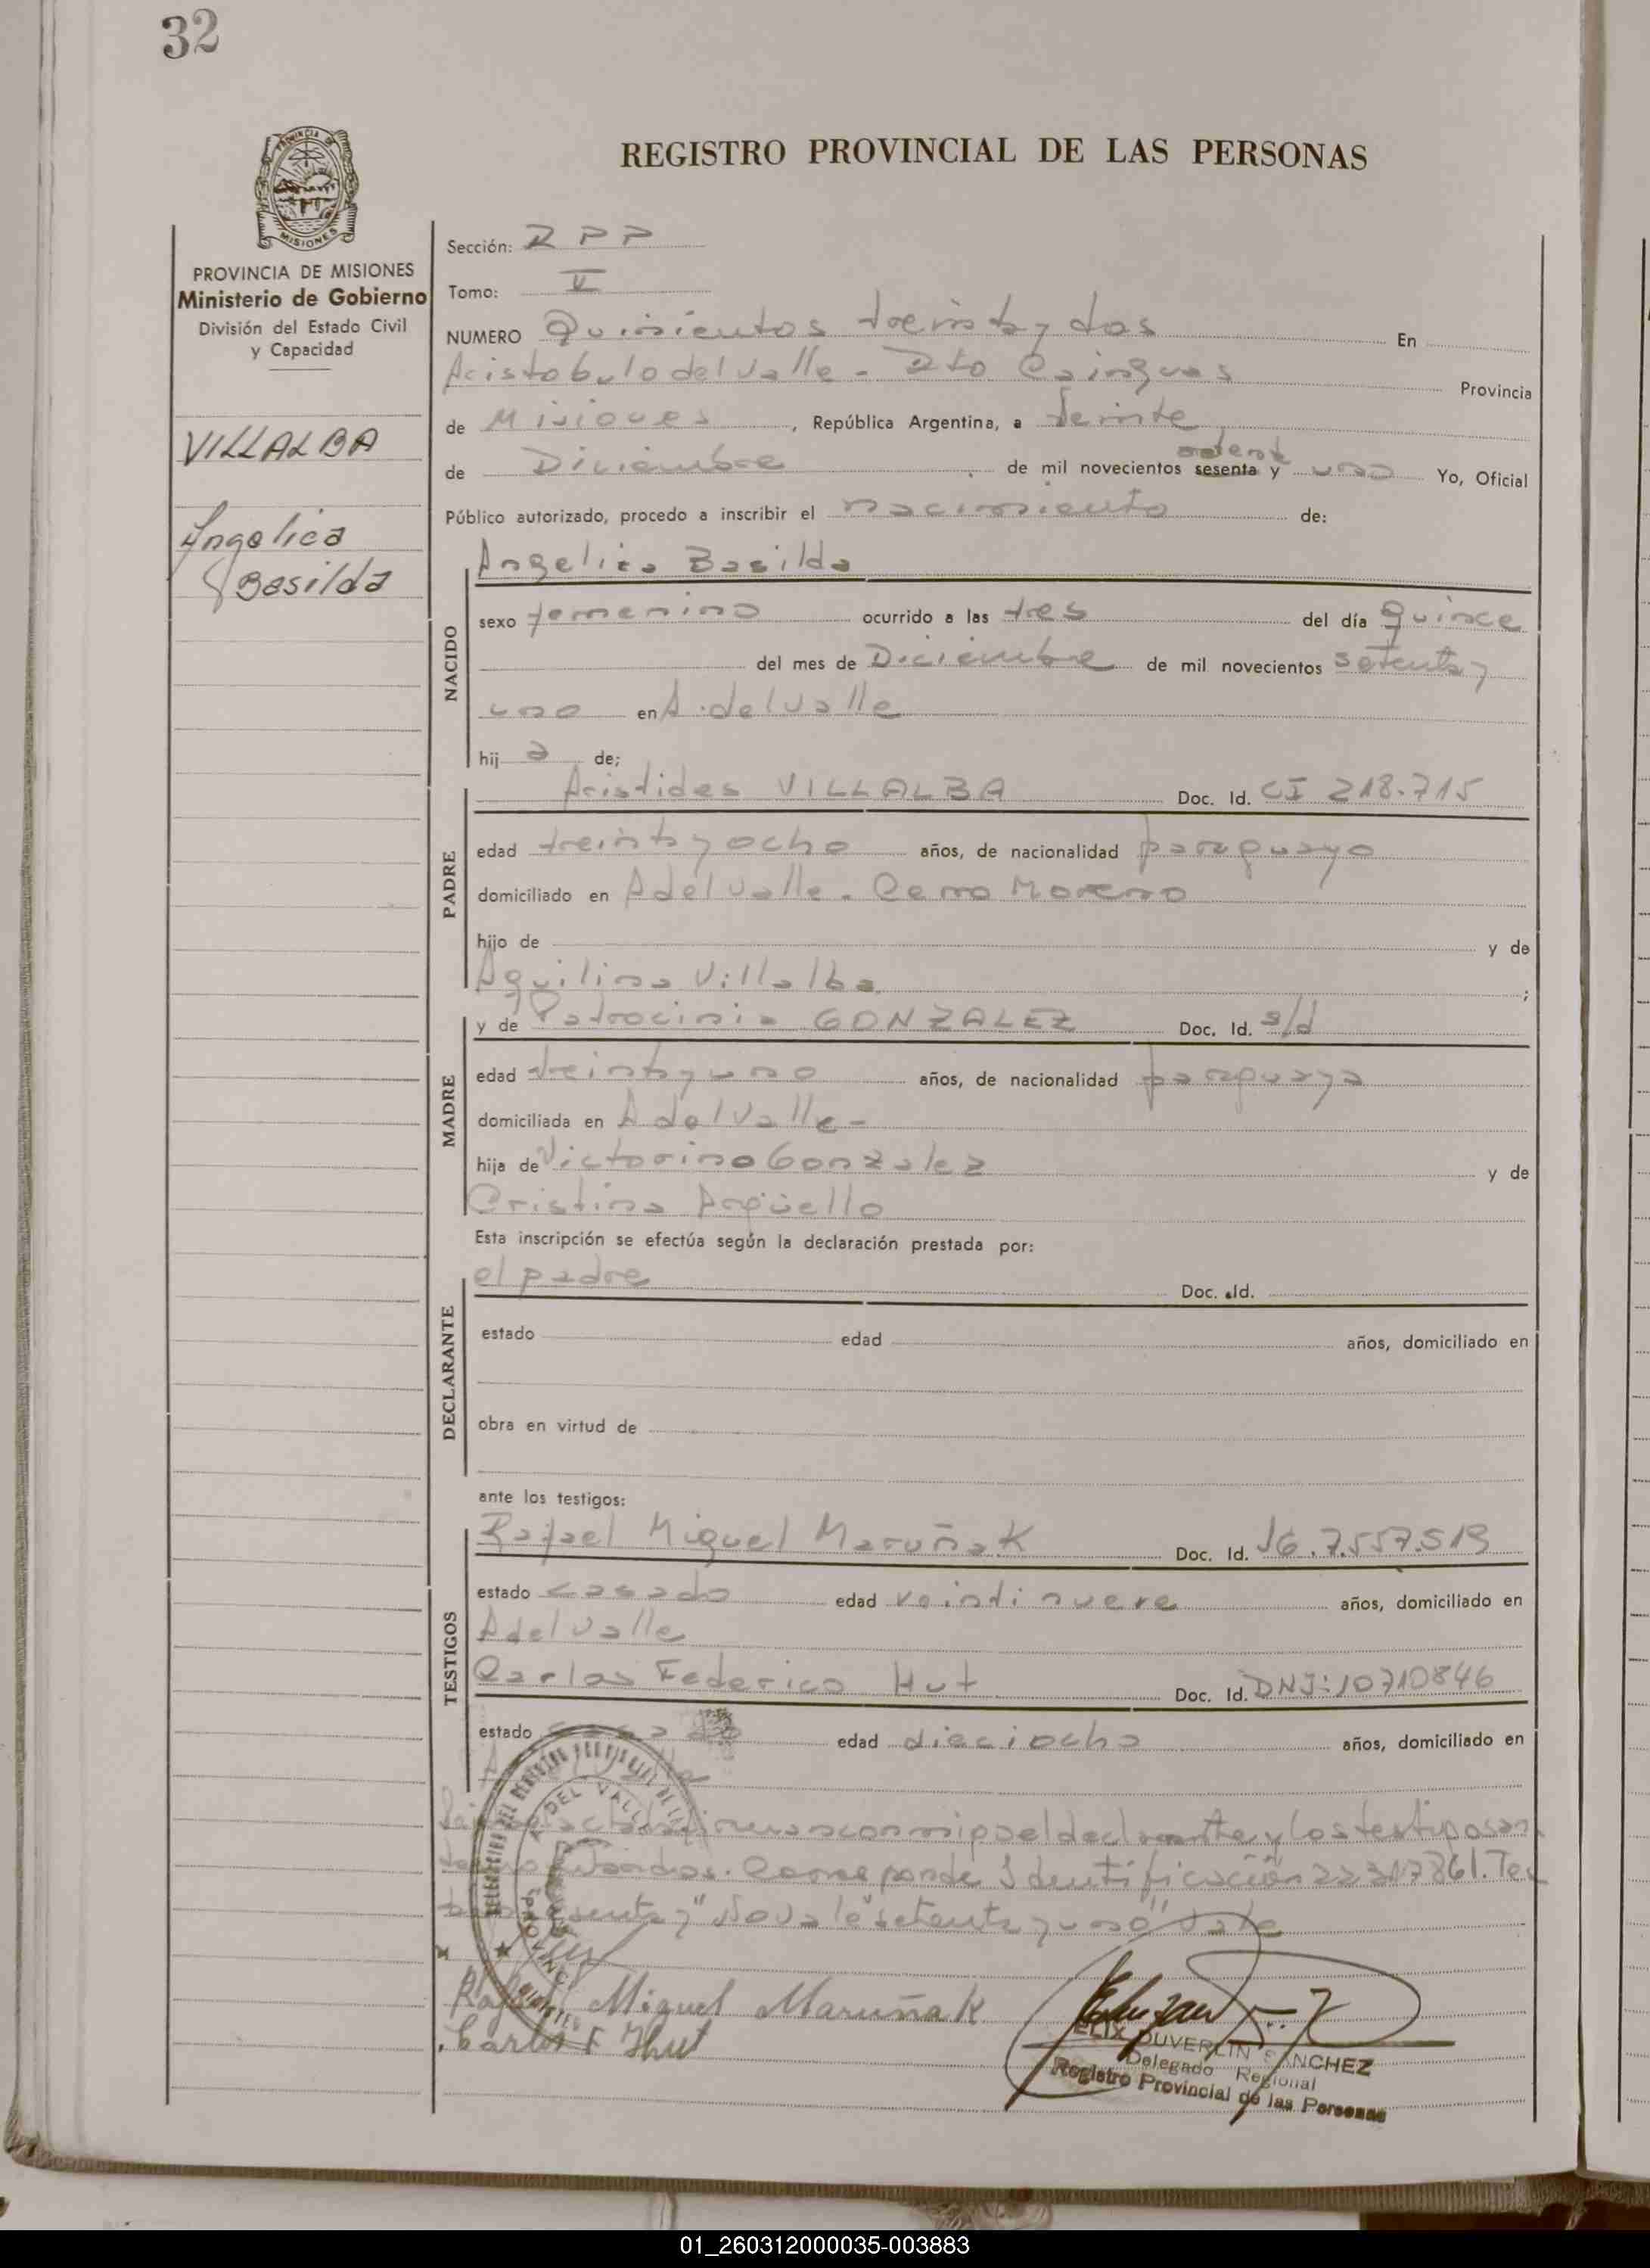 32
REGISTRO PROVINCIAL DE LAS PERSONAS
PROVINCIA DE MISIONES
Ministerio de Gobierno
División del Estado Civil
y Capacidad
VILLALBA
Angelica
Basilda
Sección:
Tomo: V
NUMERO Quinientos treinta y dos En
Aristobulo del Valle - Dto Cainguas Provincia
de Misiones, República Argentina, a Veinte
setenta
de Diciembre de mil novecientos sesenta y uno Yo, Oficial
Público autorizado, procedo a inscribir el nacimiento de:
Angelica Basilda
NACIDO
sexo femenino ocurrido a las tres del día quince
del mes de Diciembre de mil novecientos setenta y
uno en A. del Valle
hij a de;
PADRE
Aristides VILLALBA Doc. Id. CI 218.715
edad treinta y ocho años, de nacionalidad paraguayo
domiciliado en A del Valle - Cerro Moreno
hijo de y de
Aquilina Villalba ;
MADRE
y de Patrocinia GONZALEZ Doc. Id. s/d
edad treinta y uno años, de nacionalidad paraguaya
domiciliada en A del Valle -
hija de Victorino Gonzalez y de
Cristina Argüello
Esta inscripción se efectúa según la declaración prestada por:
DECLARANTE
el padre Doc. Id.
estado edad años, domiciliado en
obra en virtud de
ante los testigos:
TESTIGOS
Rafael Miguel Maruñak Doc. Id. 7.557.519
estado casado edad veintinueve años, domiciliado en
A del Valle
Carlos Federico Hut Doc. Id. DNI: 10710846
estado edad dieciocho años, domiciliado en
A del Valle
conmigo el declarante y los testigos an
Corresponde Identificación 22317861. Tes
"No vale" setenta y uno" Vale
Rafael Miguel Maruñak
Carlos F Hut
FELIX DUVERLIN SANCHEZ
Delegado Regional
Registro Provincial de las Personas
01_260312000035-003883